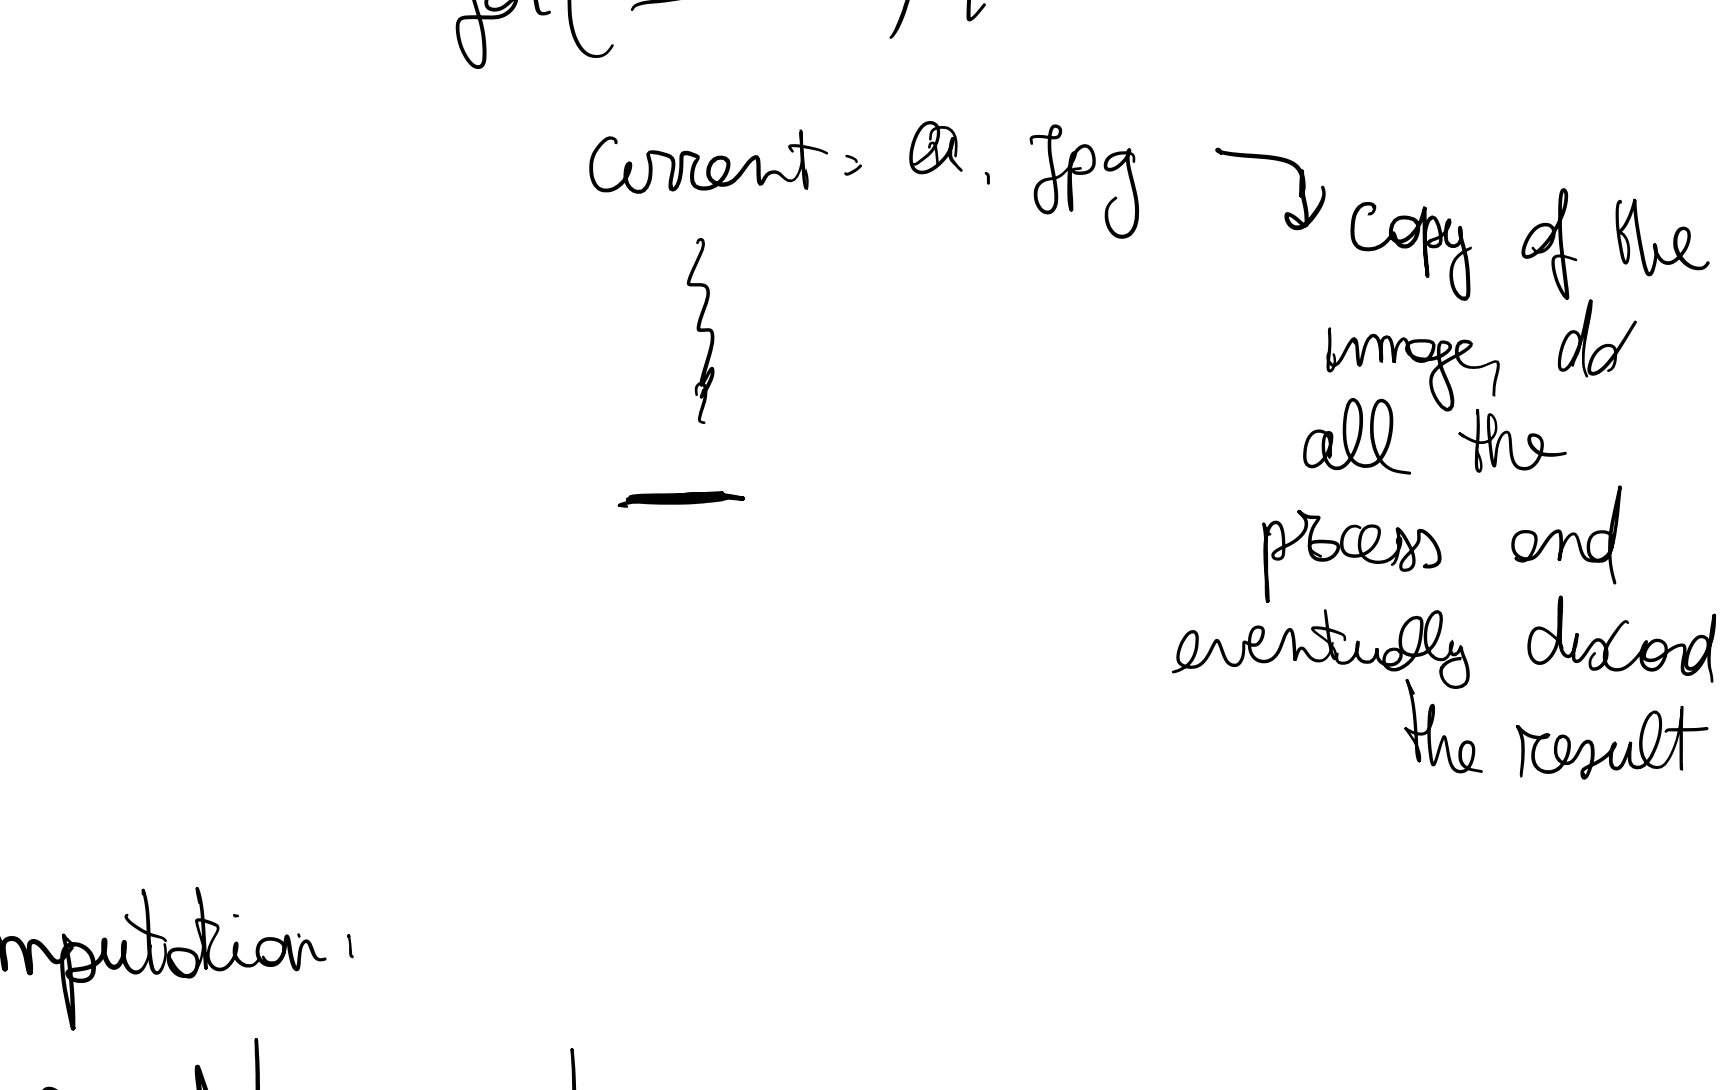 for(
current = a.jpg
copy of the
image, do
all the
process and
eventually discard
the result
mputation: